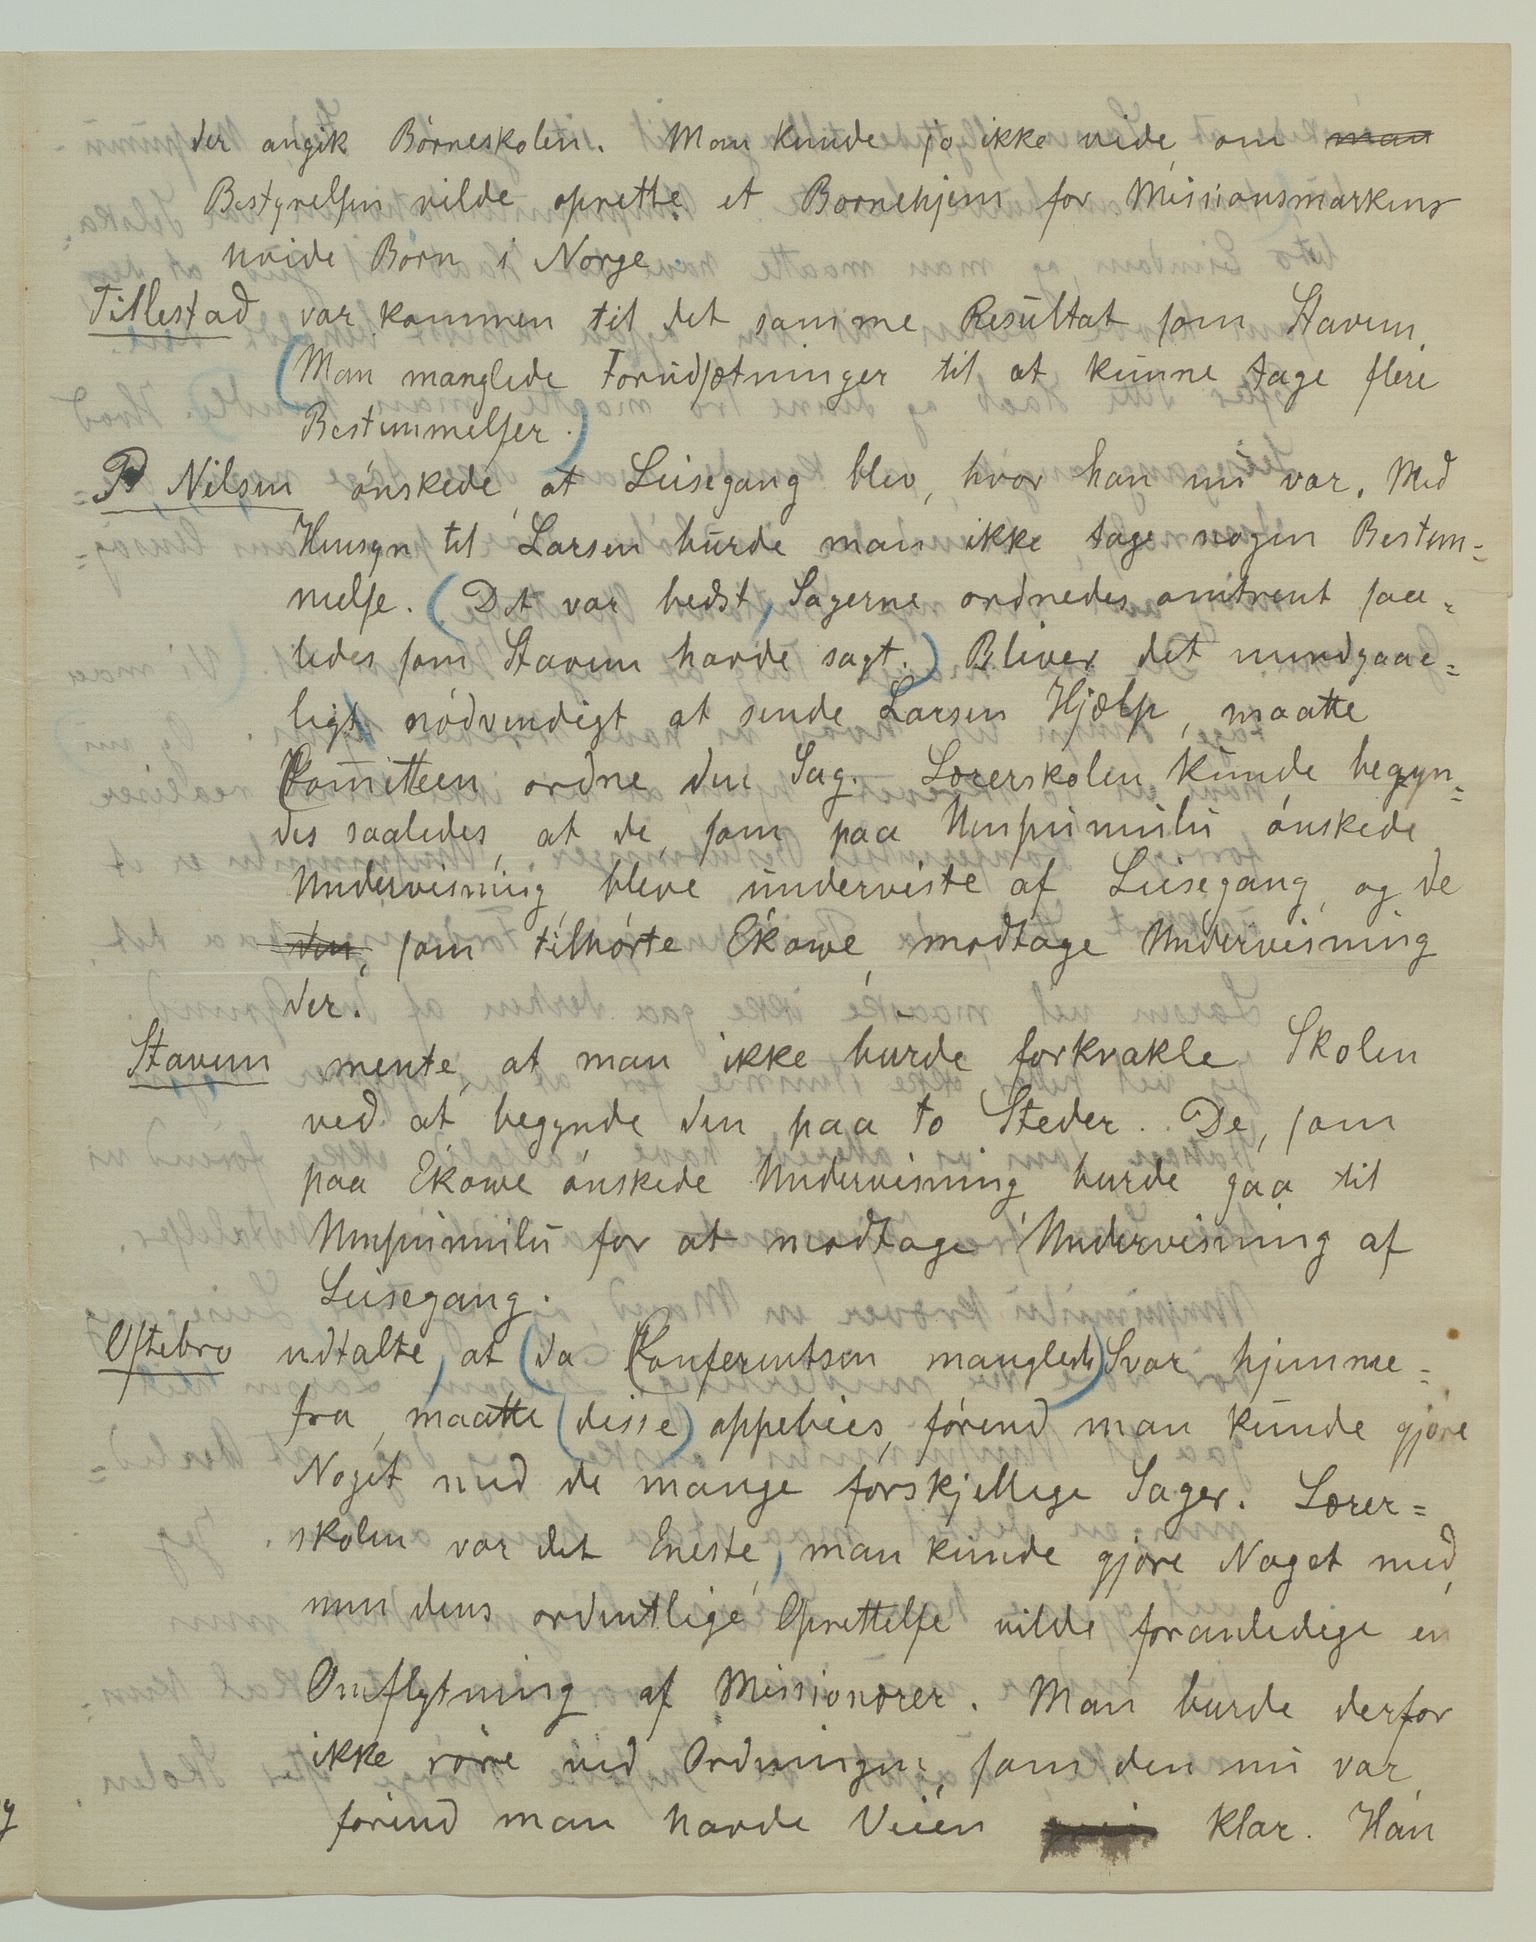 der angik Börneskolen. Man kunde jo ikke vide, om man
Bestyrelsen vilde oprette et Bornehjem for Missionsmarkens
hvide Börn i Norge
Tillestad var kommen til det samme Resultat som Stavem.
(Man manglede Forudsætninger til at kunne tage flere
Bestemmelser.)
P Nilsen önskede, at Leisegang blev, hvor han nu var. Med
Hensyn til Larsen burde man ikke tage nogen Bestem=
melse. (Det var bedst, Sagerne ordnedes omtrent saa=
ledes som Stavem havde sagt.) Bliver det uundgaae=
ligt nödvendigt at sende Larsen Hjælp, maatte
Komiteen ordne den Sag. Lærerskolen kunde begyn=
des saaledes, at de, som paa Umpumulu önskede
Undervisning bleve underviste af Leisegang, og de
den, som tilhörte Ekowe, modtage Undervisning
der.
Stavem mente, at man ikke burde forkvakle Skolen
ved at begynde den paa to Steder. De, som
paa Ekowe önskede Undervisning burde gaa til
Umpumulu for at modtage Undervisning af
Leisegang.
Oftebro udtalte, at (da Konferentsen manglede) Svar hjemme=
fra, maatte (disse) oppebies, förend man kunde gjöre
Noget med de mange forskjellige Sager. Lærer=
skolen var det Eneste, man kunde gjöre Noget med,
men dens ordentlige Oprettelse vilde foranledige en
Omflytning af Missionærer. Man burde derfor
ikke röre ved Ordningen, som den nu var,
förend man havde Veien klar. Han